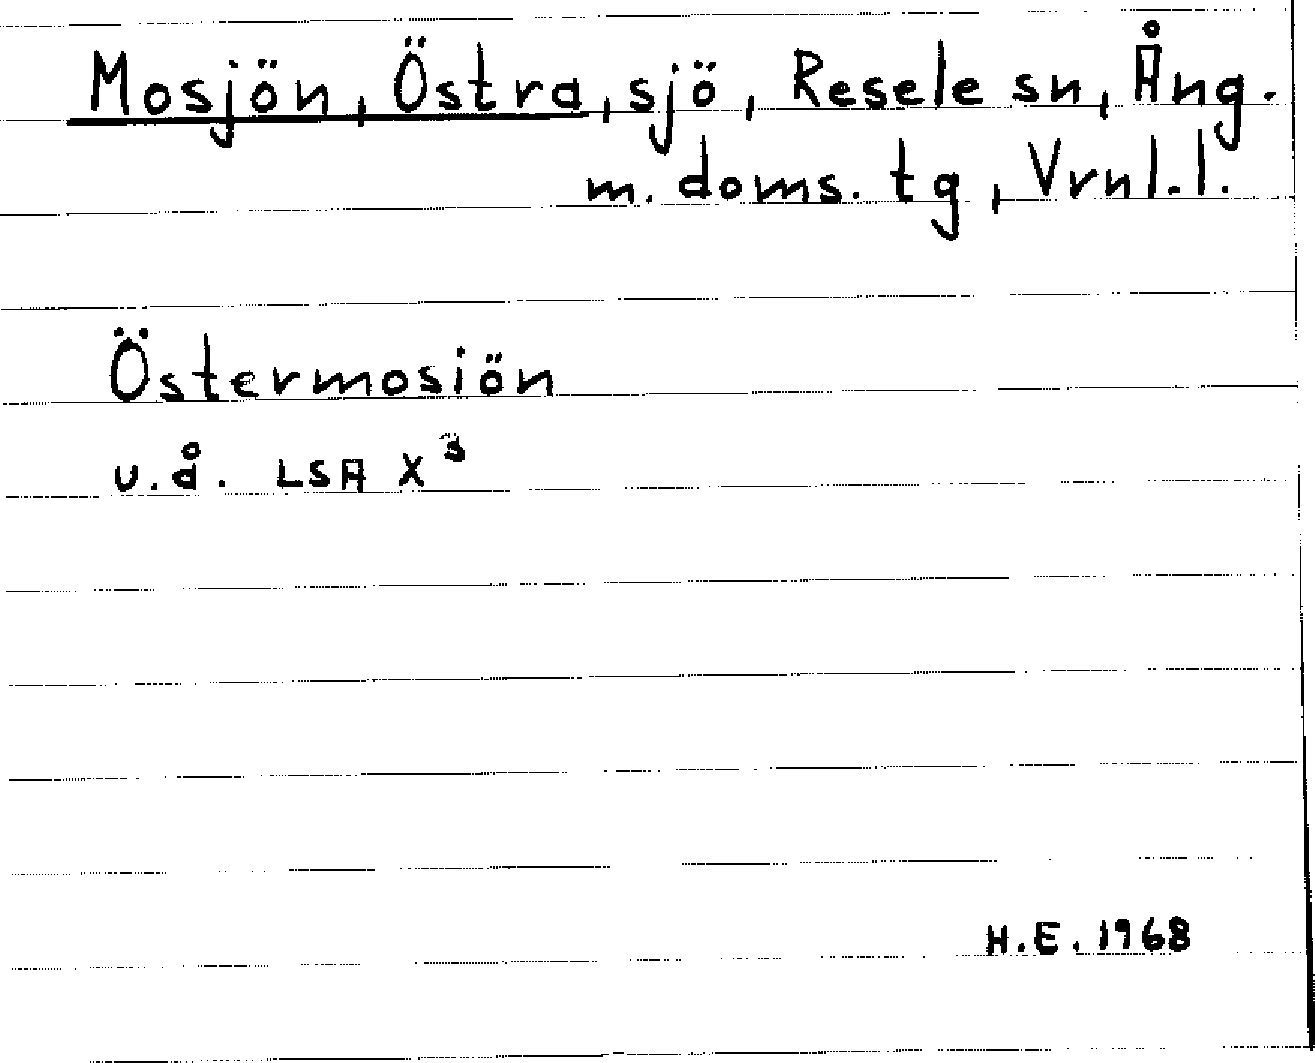 Mosjön, Östra, sjö, Resele sn, Ång.
m. doms. tg, Vrnl. l.
Östermosiön
u.å. LSA X³
H.E. 1968